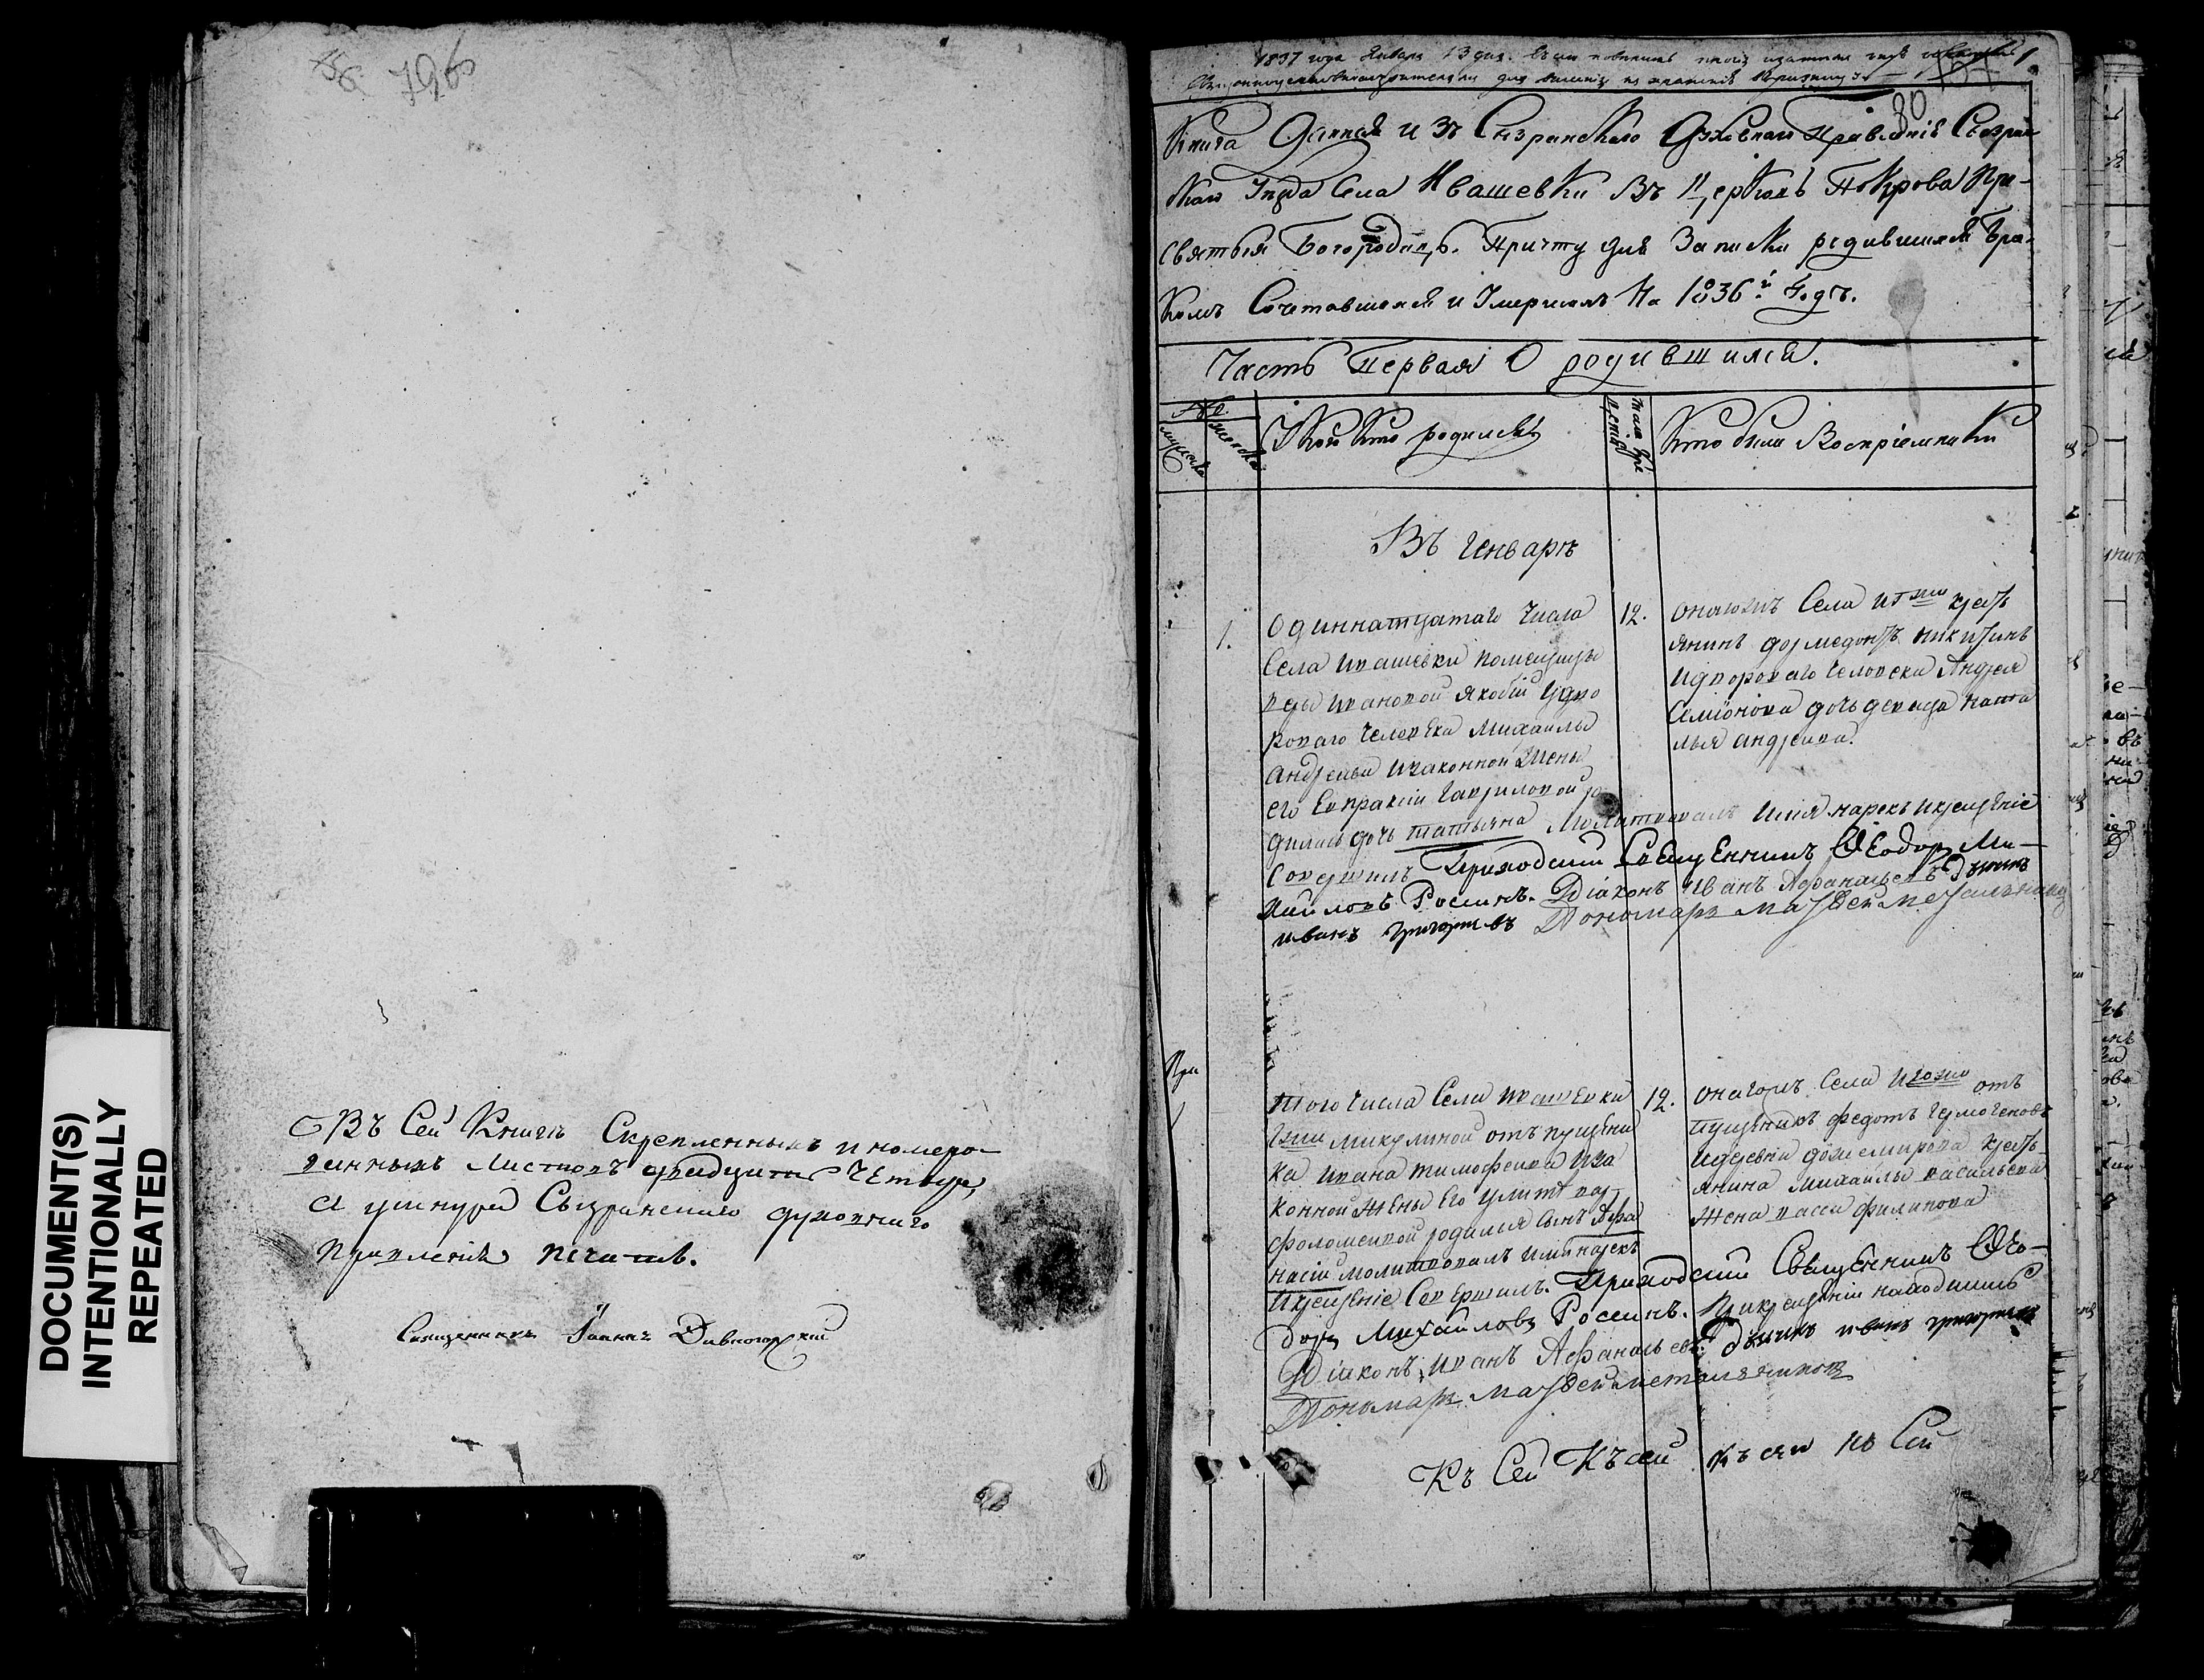 796
DOCUMENT(S)
INTENTIONALLY
REPEATED
Въ Сей Книгѣ Скрепленныхъ и номеро-
ванныхъ Листовъ дватцать Четыре,
а у шнура Сызранскаго духовнаго
правленія печать.
Священникъ Іоаннъ Дивногорскій
1837 года Января 13 дня.
80
Книга Данная изъ Сызранскаго Духовнаго Правленія Сызран-
скаго Уезда Села Ивашевки Въ Церковь Покрова Пре-
святыя Богородицы. Причту для Записки родившихся Бра-
комъ Сочетавшихся и Умершихъ На 1836й Годъ.
Часть Первая О родившихся.
№
мужеска
женска
У Кого Кто родились
Кто были Воспріемники
Въ Генварѣ
1.
Одиннатцатаго Числа
Села Ивашевки помещицы
веры Ивановой Якобіи у дво
роваго Человека Михаилы
Андреева и законной Жены
его Евпраксіи Гавриловой ро
дилась дочь Татьяна Молитвовалъ имя нарекъ и крещеніе
Совершилъ Приходскій Священникъ Ѳеодоръ Ми-
хайловъ Росинъ. Діаконъ Иванъ Афанасьевъ Дьячикъ
иванъ григорьевъ Пономарь Матвей
12.
онагожъ Села и гжи крест
янинъ дормедонтъ никитинъ
и двороваго Человека Андрея
Семіонова дочь девица Ната
лья Андреева.
1
того Числа Села Ивашевки
Гжи микулиной отъ пущени
ка Ивана тимофеева и за
конной Жены Его улиты вар
фоломеевой родился Сынъ Афа
насій молитвовалъ имя нарекъ
и крещеніе Совершилъ. Приходскій Священникъ Ѳео-
доръ Михайловъ Росинъ. При крещеніи находились
Діаконъ Иванъ Афанасьевъ Дьячикъ иванъ григорьевъ
Пономарь Матвей
12.
онагожъ Села отъ
пущеникъ федотъ гермогеновъ
и деревни крест
янина михаилы васильева
Жена васса филипова
Къ Сей Къ сей къ сей къ Сей